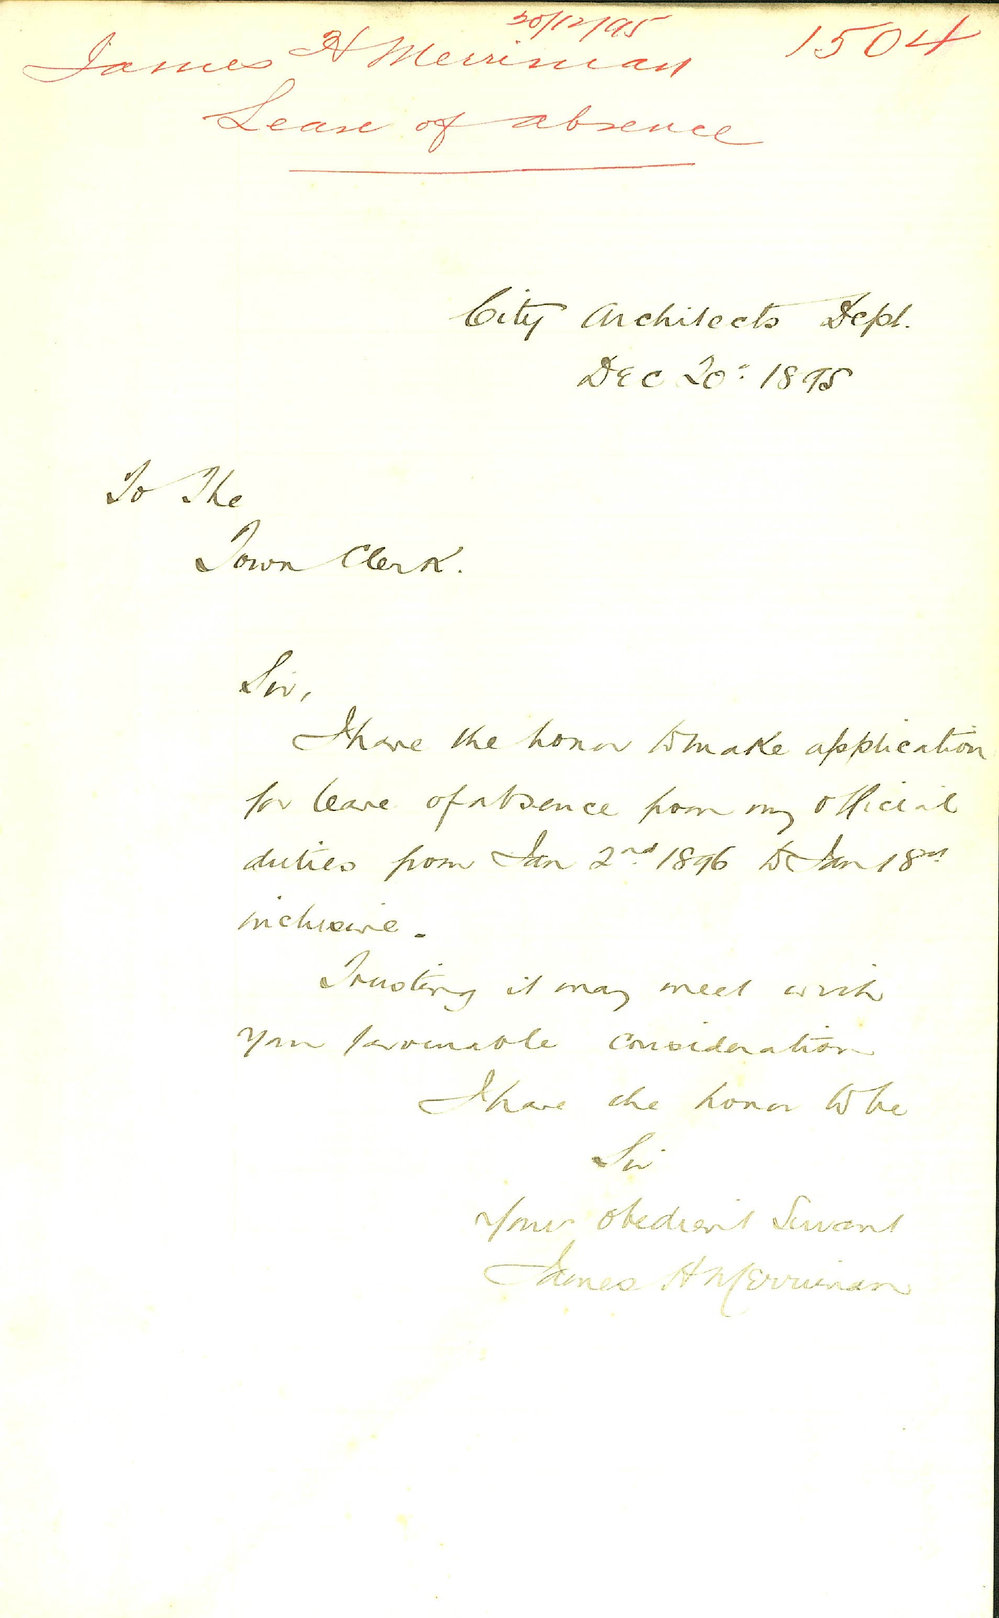 30/12/95
James H Merriman 1504
Leave of absence
City Architects Dept.
Dec 20th 1895
To The
Town Clerk.
Sir,
I have the honor to make application
for leave of absence from my official
duties from Jan 2nd 1896 to Jan 18th
inclusive.
Trusting it may meet with
your favourable consideration
I have the honor to be
Sir
Your obedient Servant
James H Merriman